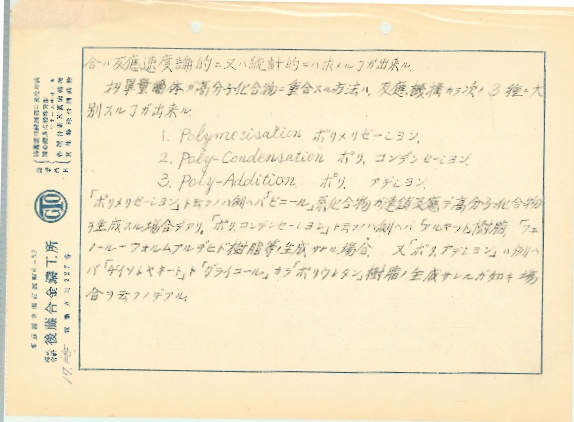 合ハ反應速度論的ニ又ハ統計的ニハホメルヿガ出来ル.
扨單量体ガ高分子化合物ニ重合スル方法ハ, 反應機構カラ次ノ3種ニ大
別スルヿガ出来ル.
1. Polymerisation ポリメリゼーション.
2. Poly-Condensation ポリ. コンデンゼーション.
3. Poly-Addition ポリ. アデション.
「ポリメリゼーション」ト云フノハ例ヘバ「ビニール」系化合物ガ連鎖反應デ高分子化合物
ヲ生成スル場合デアリ,「ポリ.コンデンゼーション」ト云フノハ例ヘバ「アルキッド」樹脂「フェ
ノール-フォルムアルデヒド」樹脂等ノ生成サレル場合, 又「ポリ.アデション」ハ例ヘ
バ「ヂイソシヤネート」ト「グライコール」カラ「ポリウレタン」樹脂ノ生成サレルガ如キ場
合ヲ云フノデアル.
GTO
株式会社 後藤合金鑄工所